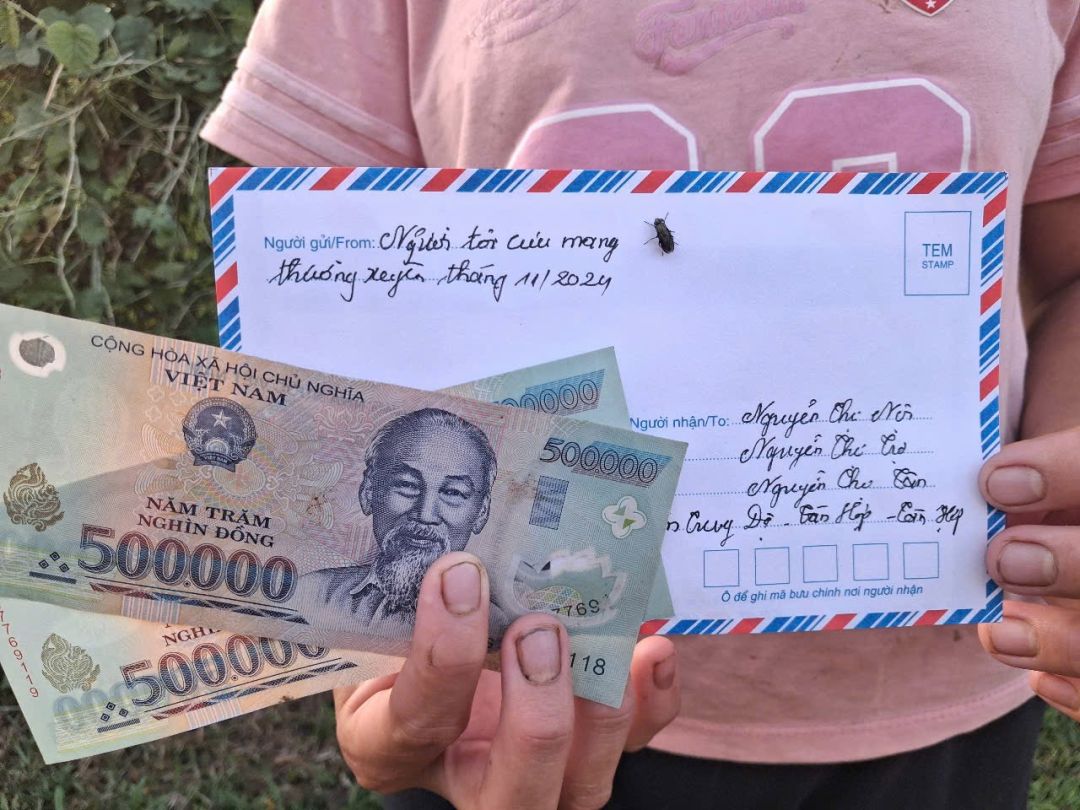 Người gửi/From: Người tôi cưu mang
thường xuyên tháng 11/2024
TEM
STAMP
CỘNG HÒA XÃ HỘI CHỦ NGHĨA
VIỆT NAM
500.000
NĂM TRĂM
NGHÌN ĐỒNG
500.000
Người nhận/To: Nguyễn Thị
Nguyễn Thị
Nguyễn Thị
Trung Độ - Tân Hợp - Tân Kỳ
Ô để ghi mã bưu chính nơi người nhận
500.000
7769119
118